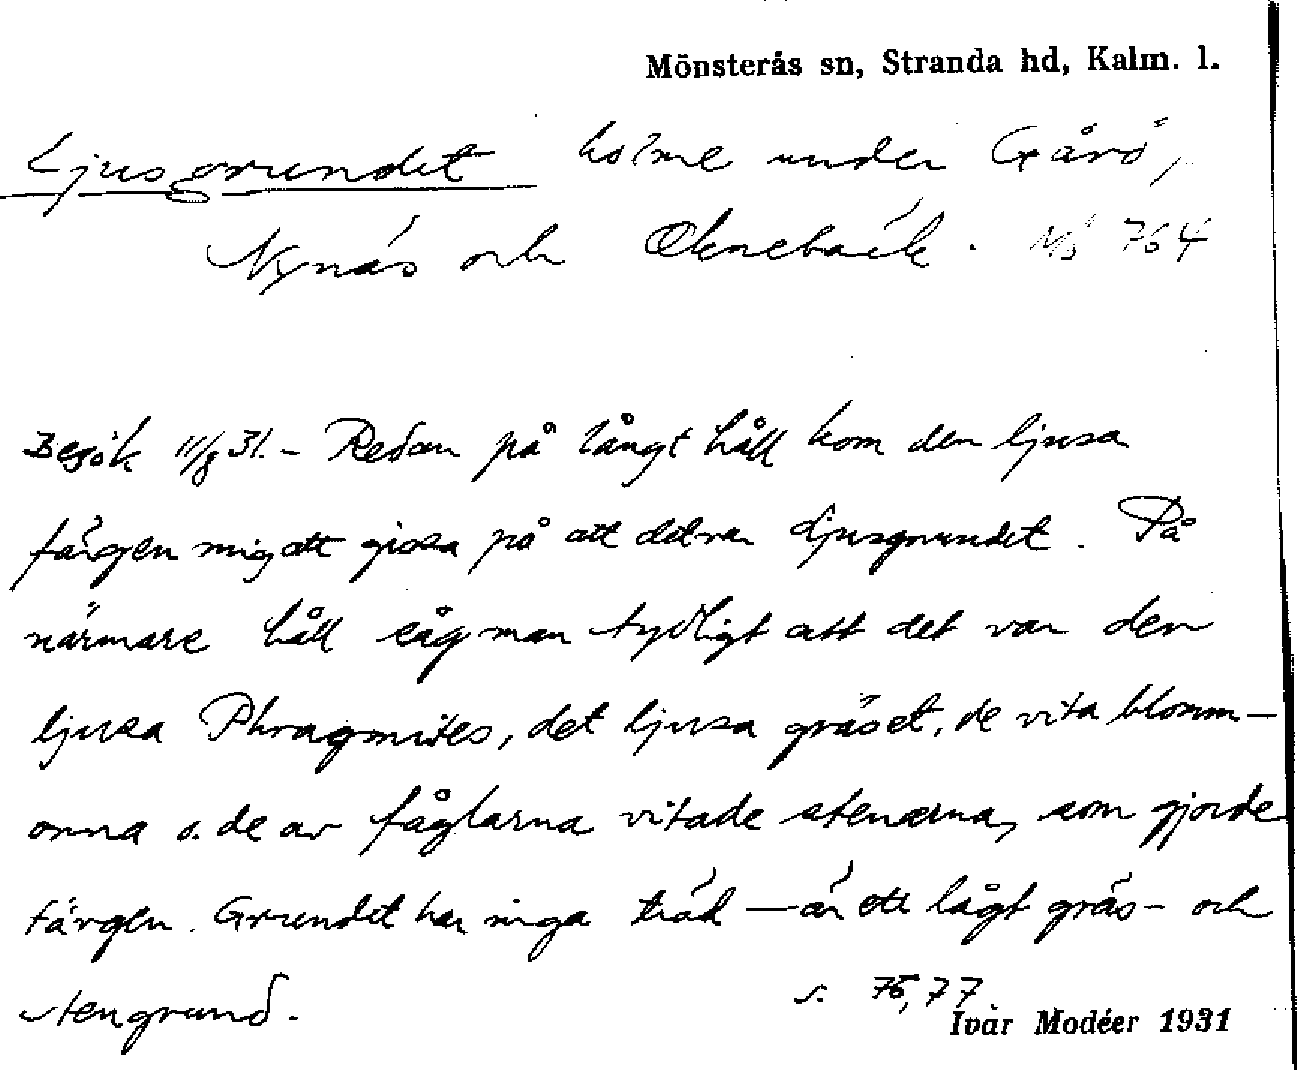 Mönsterås sn, Stranda hd, Kalm. l.
Ljusgrundet holme under Gårö,
Nynäs och Oknebäck. Nb 764
Besök 11/8 31. – Redan på långt håll kom den ljusa
färgen mig att gissa på att det var Ljusgrundet. På
närmare håll såg man tydligt att det var den
ljusa Phragmites, det ljusa gräset, de vita blomm-
orna o. de av fåglarna vitade stenarna, som gjorde
färgen. Grundet har inga träd — är ett lågt gräs- och
stengrund.
s. 76, 77
Ivar Modéer 1931